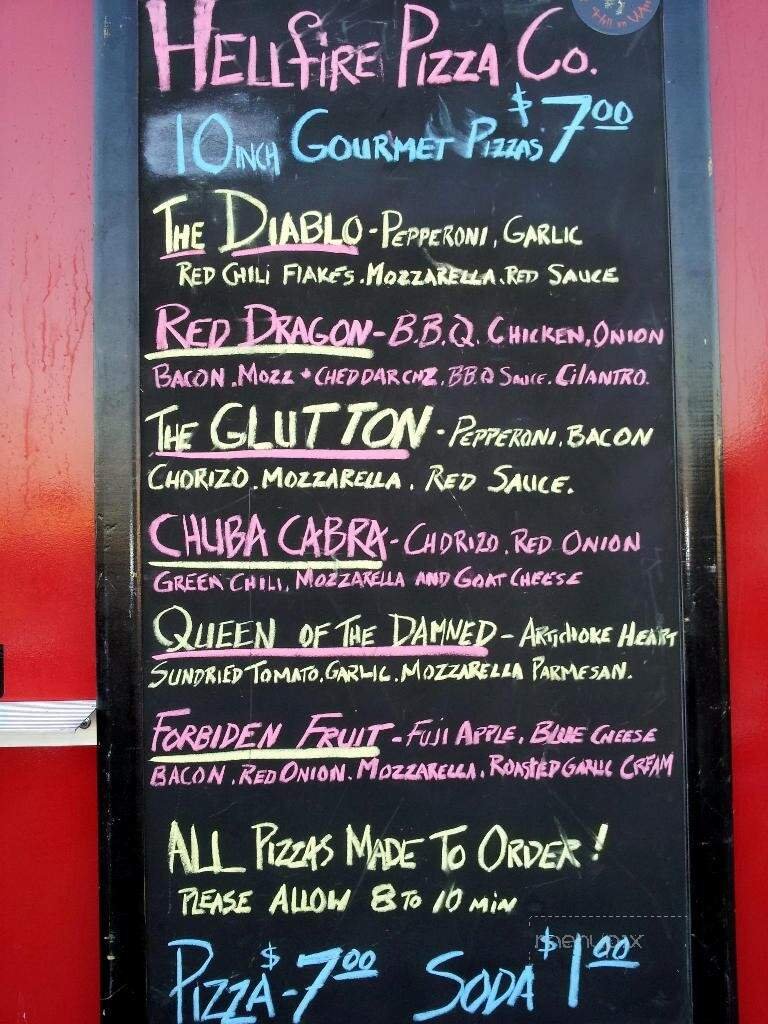 Hell on Wh
HELLFIRE PIZZA CO.
10 INCH GOURMET PIZZAS $7.00
THE DIABLO - PEPPERONI, GARLIC
RED CHILI FLAKES. MOZZARELLA. RED SAUCE
RED DRAGON - B.B.Q. CHICKEN, ONION
BACON. MOZZ + CHEDDAR CHZ. BBQ SAUCE. CILANTRO.
THE GLUTTON - PEPPERONI, BACON
CHORIZO. MOZZARELLA. RED SAUCE.
CHUBA CABRA - CHORIZO. RED ONION
GREEN CHILI, MOZZARELLA AND GOAT CHEESE
QUEEN OF THE DAMNED - ARTICHOKE HEART
SUNDRIED TOMATO. GARLIC. MOZZARELLA PARMESAN.
FORBIDEN FRUIT - FUJI APPLE. BLUE CHEESE
BACON. RED ONION. MOZZARELLA. ROASTED GARLIC CREAM
ALL PIZZAS MADE TO ORDER!
PLEASE ALLOW 8 TO 10 MIN
menupix
PIZZA - $7.00 SODA $1.00